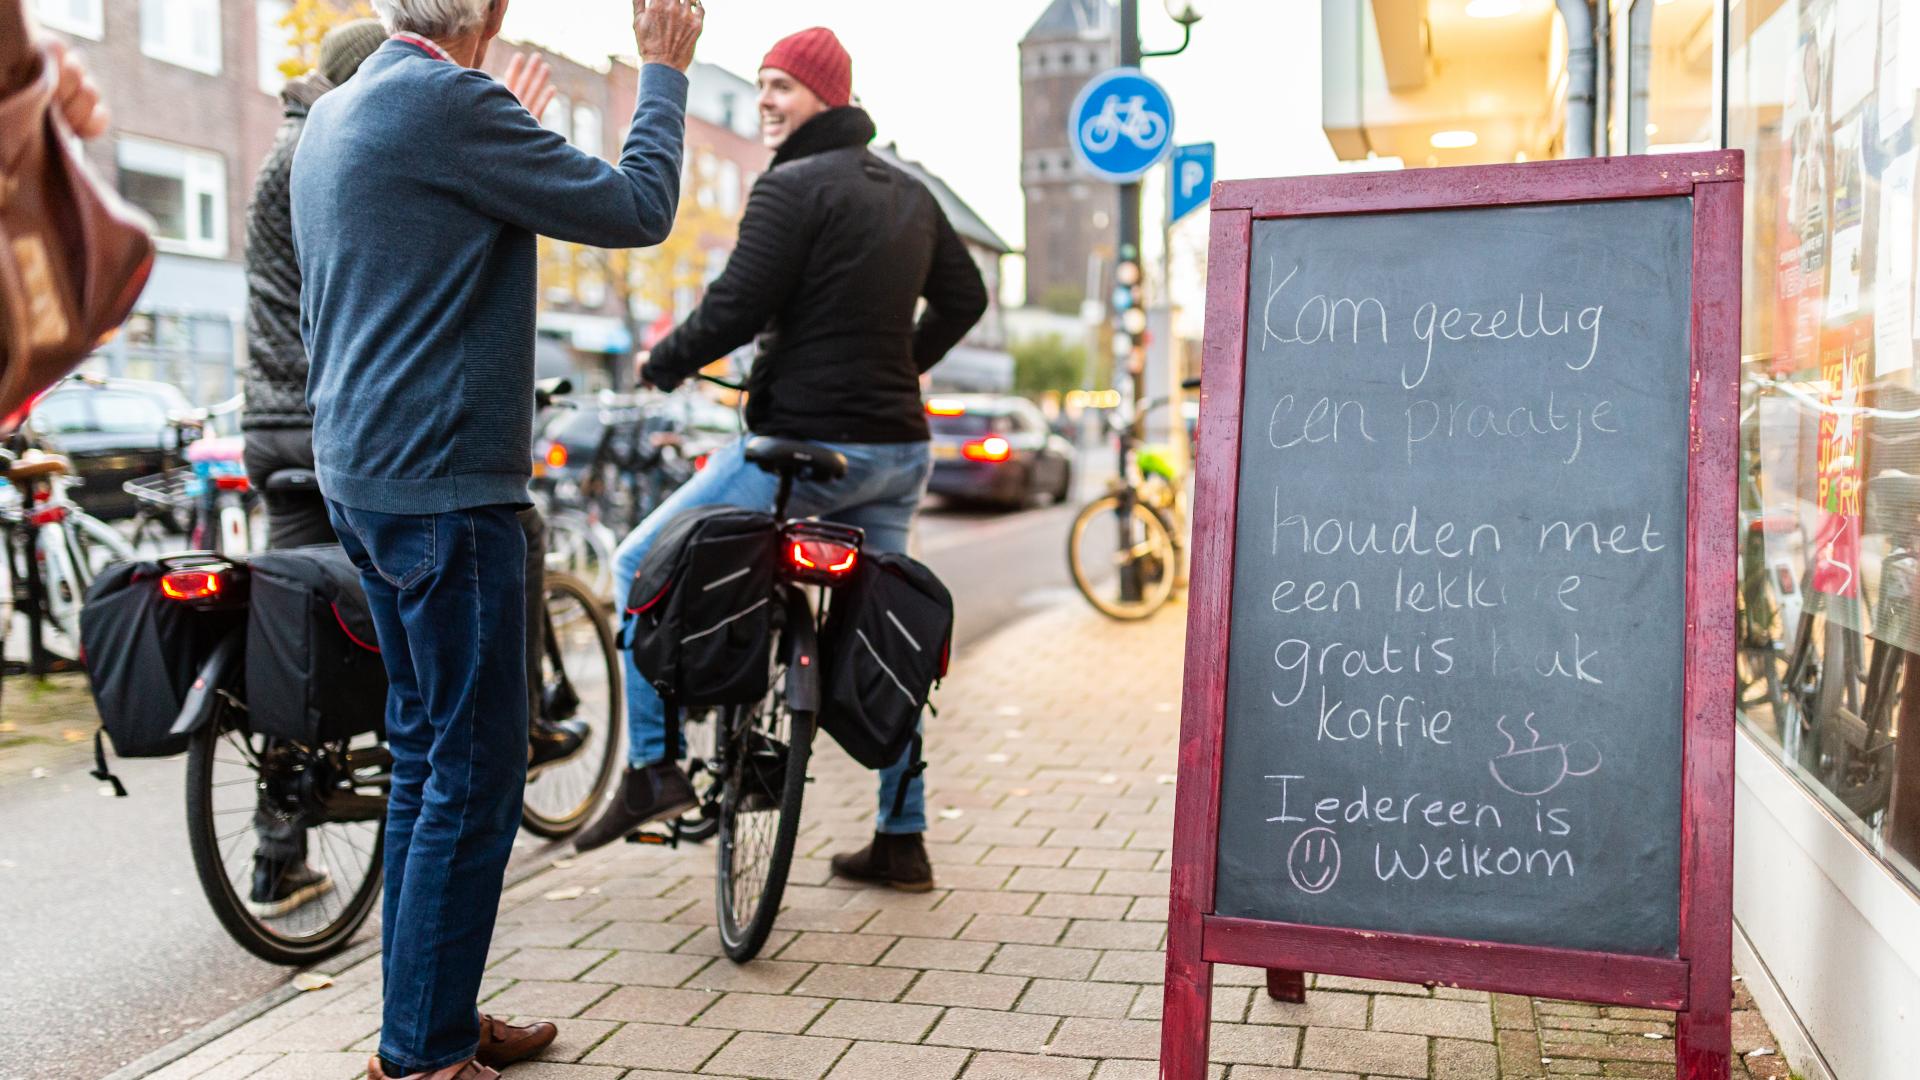 Kom gezellig
een praatje
houden met
een lekk e
gratis uk
koffie
Iedereen is
Welkom
P